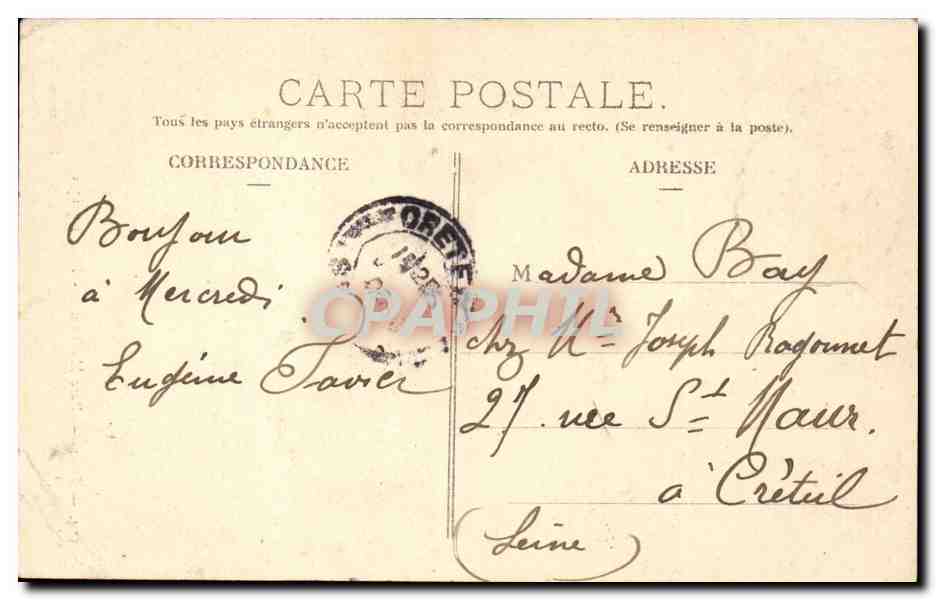 CARTE POSTALE.
Tous les pays étrangers n'acceptent pas la correspondance au recto. (Se renseigner à la poste).
CORRESPONDANCE
ADRESSE
Bonjour
à Mercredi
Eugénie
Madame Bay
chz Mr Joseph Ragonnet
27. rue St Maur.
à Créteil
(Seine)
CRETEIL
CPAPHIL